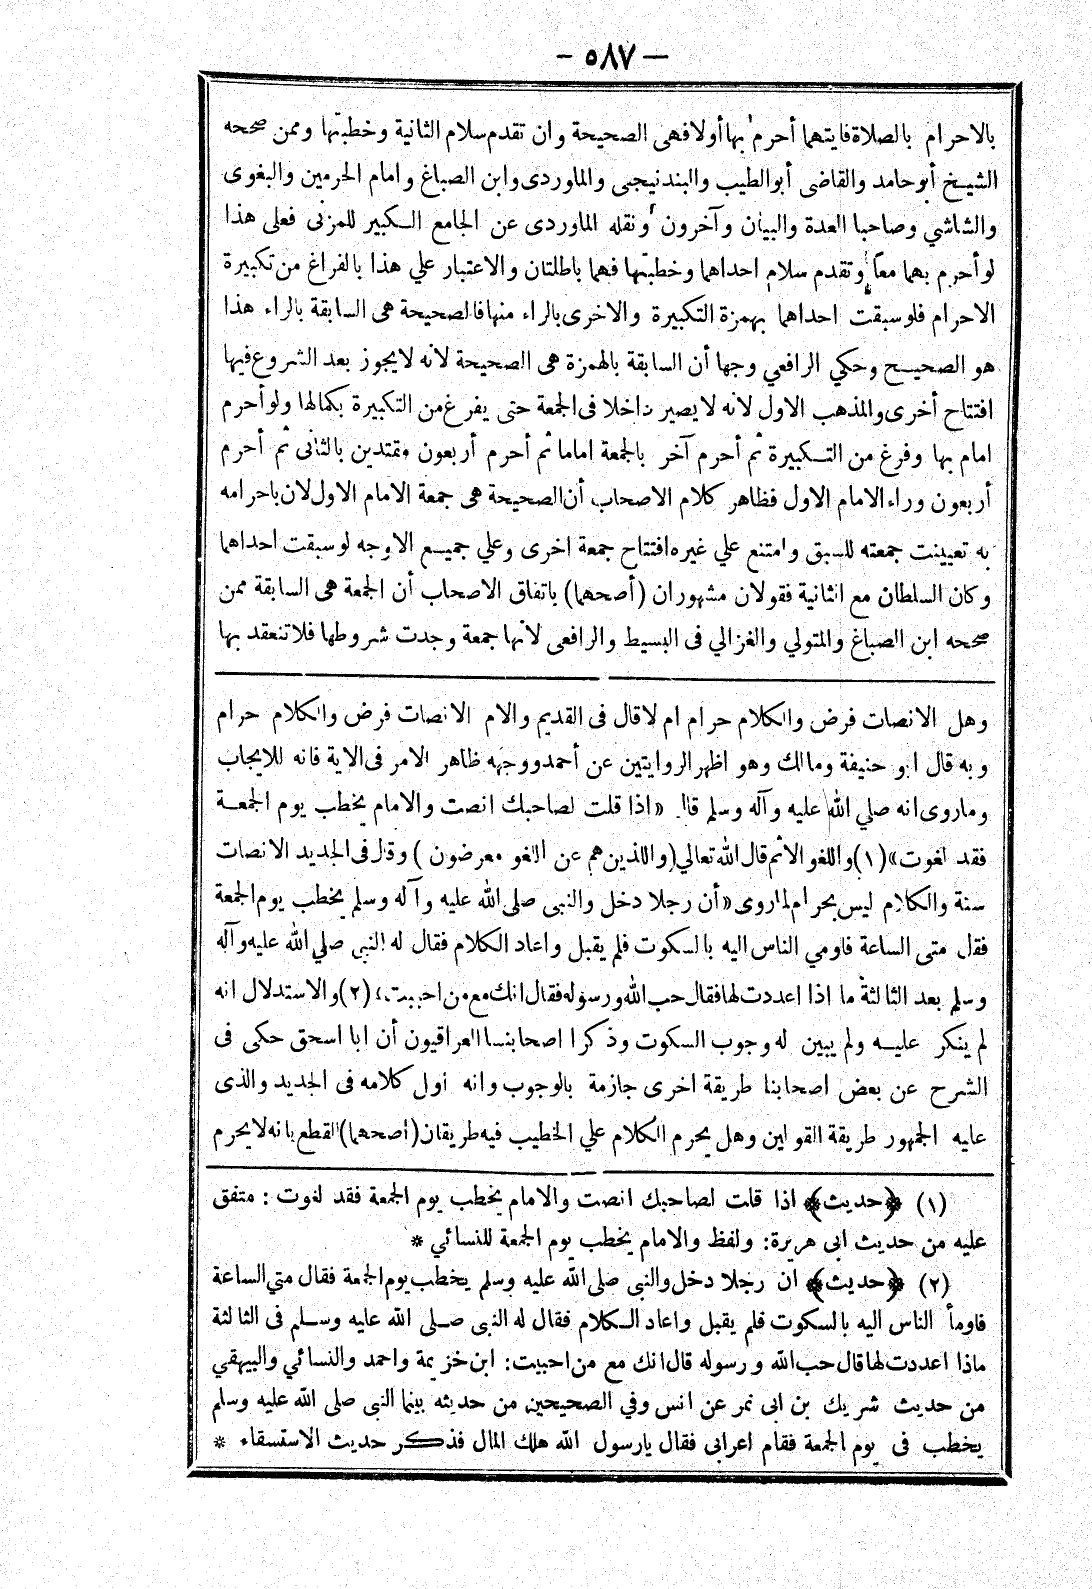 — ٥٨٧ —
بالاحرام بالصلاة فايتهما أحرم بها أولا فهى الصحيحة وان تقدم سلام الثانية وخطبتها وممن صححه
الشيخ أبو حامد والقاضى أبو الطيب والبندنيجى والماوردى وابن الصباغ وامام الحرمين والبغوى
والشاشي وصاحبا العدة والبيان وآخرون ونقله الماوردى عن الجامع الكبير للمزنى فعلى هذا
لو أحرم بهما معاً وتقدم سلام احداهما وخطبتها فهما باطلتان والاعتبار علي هذا بالفراغ من تكبيرة
الاحرام فلو سبقت احداهما بهمزة التكبيرة والاخرى بالراء منها فالصحيحة هى السابقة بالراء هذا
هو الصحيح وحكي الرافعي وجها أن السابقة بالهمزة هى الصحيحة لانه لا يجوز بعد الشروع فيها
افتتاح أخرى والمذهب الاول لانه لا يصير داخلا فى الجمعة حتى يفرغ من التكبيرة بكمالها ولو أحرم
امام بها وفرغ من التكبيرة ثم أحرم آخر بالجمعة اماما ثم أحرم أربعون مقتدين بالثانى ثم أحرم
أربعون وراء الامام الاول فظاهر كلام الاصحاب أن الصحيحة هى جمعة الامام الاول لان باحرامه
به تعيينت جمعته للسبق وامتنع علي غيره افتتاح جمعة اخرى وعلي جميع الاوجه لو سبقت احداهما
وكان السلطان مع الثانية فقولان مشهوران (أصحهما) باتفاق الاصحاب أن الجمعة هى السابقة ممن
صححه ابن الصباغ والمتولي والغزالي فى البسيط والرافعى لانها جمعة وجدت شروطها فلا تنعقد بها
وهل الانصات فرض والكلام حرام ام لا قال فى القديم والام الانصات فرض والكلام حرام
وبه قال ابو حنيفة ومالك وهو اظهر الروايتين عن أحمد ووجهه ظاهر الامر فى الاية فانه للايجاب
وما روى انه صلي الله عليه وآله وسلم قال «اذا قلت لصاحبك انصت والامام يخطب يوم الجمعة
فقد لغوت» (١) واللغو الاثم قال الله تعالي (والذين هم عن اللغو معرضون) وقال فى الجديد الانصات
سنة والكلام ليس بحرام لما روى «أن رجلا دخل والنبى صلى الله عليه وآله وسلم يخطب يوم الجمعة
فقل متى الساعة فاومي الناس اليه بالسكوت فلم يقبل واعاد الكلام فقال له النبى صلي الله عليه وآله
وسلم بعد الثالثة ما اذا اعددت لها فقال حب الله ورسوله فقال انك مع من احببت» (٢) والاستدلال انه
لم ينكر عليه ولم يبين له وجوب السكوت وذكر اصحابنا العراقيون أن ابا اسحق حكى فى
الشرح عن بعض اصحابنا طريقة اخرى جازمة بالوجوب وانه أول كلامه فى الجديد والذى
عليه الجمهور طريقة القولين وهل يحرم الكلام علي الخطيب فيه طريقان (أصحهما) القطع بانه لا يحرم
(١) ﴿حديث﴾ اذا قلت لصاحبك انصت والامام يخطب يوم الجمعة فقد لغوت : متفق
عليه من حديث ابى هريرة: ولفظ والامام يخطب يوم الجمعة للنسائي *
(٢) ﴿حديث﴾ ان رجلا دخل والنبى صلى الله عليه وسلم يخطب يوم الجمعة فقال متي الساعة
فاومأ الناس اليه بالسكوت فلم يقبل واعاد الكلام فقال له النبى صلى الله عليه وسلم فى الثالثة
ماذا اعددت لها قال حب الله ورسوله قال انك مع من احببت: ابن خزيمة واحمد والنسائي والبيهقي
من حديث شريك بن ابى نمر عن انس وفي الصحيحين من حديثه بينما النبى صلى الله عليه وسلم
يخطب فى يوم الجمعة فقام اعرابى فقال يا رسول الله هلك المال فذكر حديث الاستسقاء *